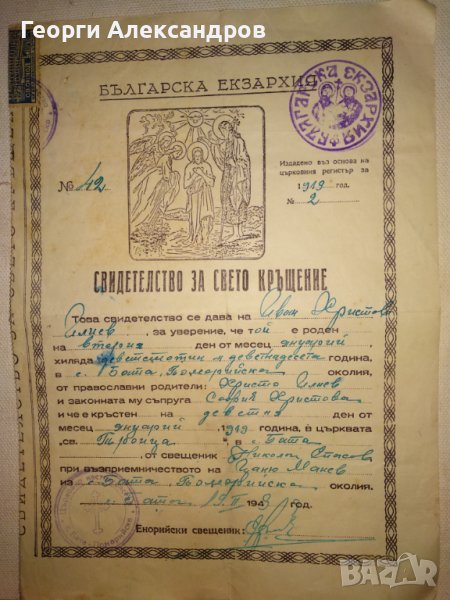 Георги Александров
БЪЛГАРСКА ЕКЗАРХИЯ
БЪЛГАРСКА ЕКЗАРХИЯ
Издадено въз основа на
църковния регистър за
1919 год.
№ 2
№ 42
СВИДЕТЕЛСТВО ЗА СВЕТО КРЪЩЕНИЕ
Това свидетелство се дава на Иван Христов
Илиев, за уверение, че той е роден
на втория ден от месец януарий
хиляда деветстотин и деветнадесета година,
в с. Бата, Поморийска околия,
от православни родители: Христо Илиев
и законната му съпруга София Христова
и че е кръстен на девети ден от
месец януарий 1919 година, в църквата
„св. Троица" в с. Бата
от свещеник Никола Спасов
при възприемничеството на Цаню Манев
из с. Бата Поморийска околия.
с. Бата 15.II 1948 год.
Енорийски свещеник:
BAZAR